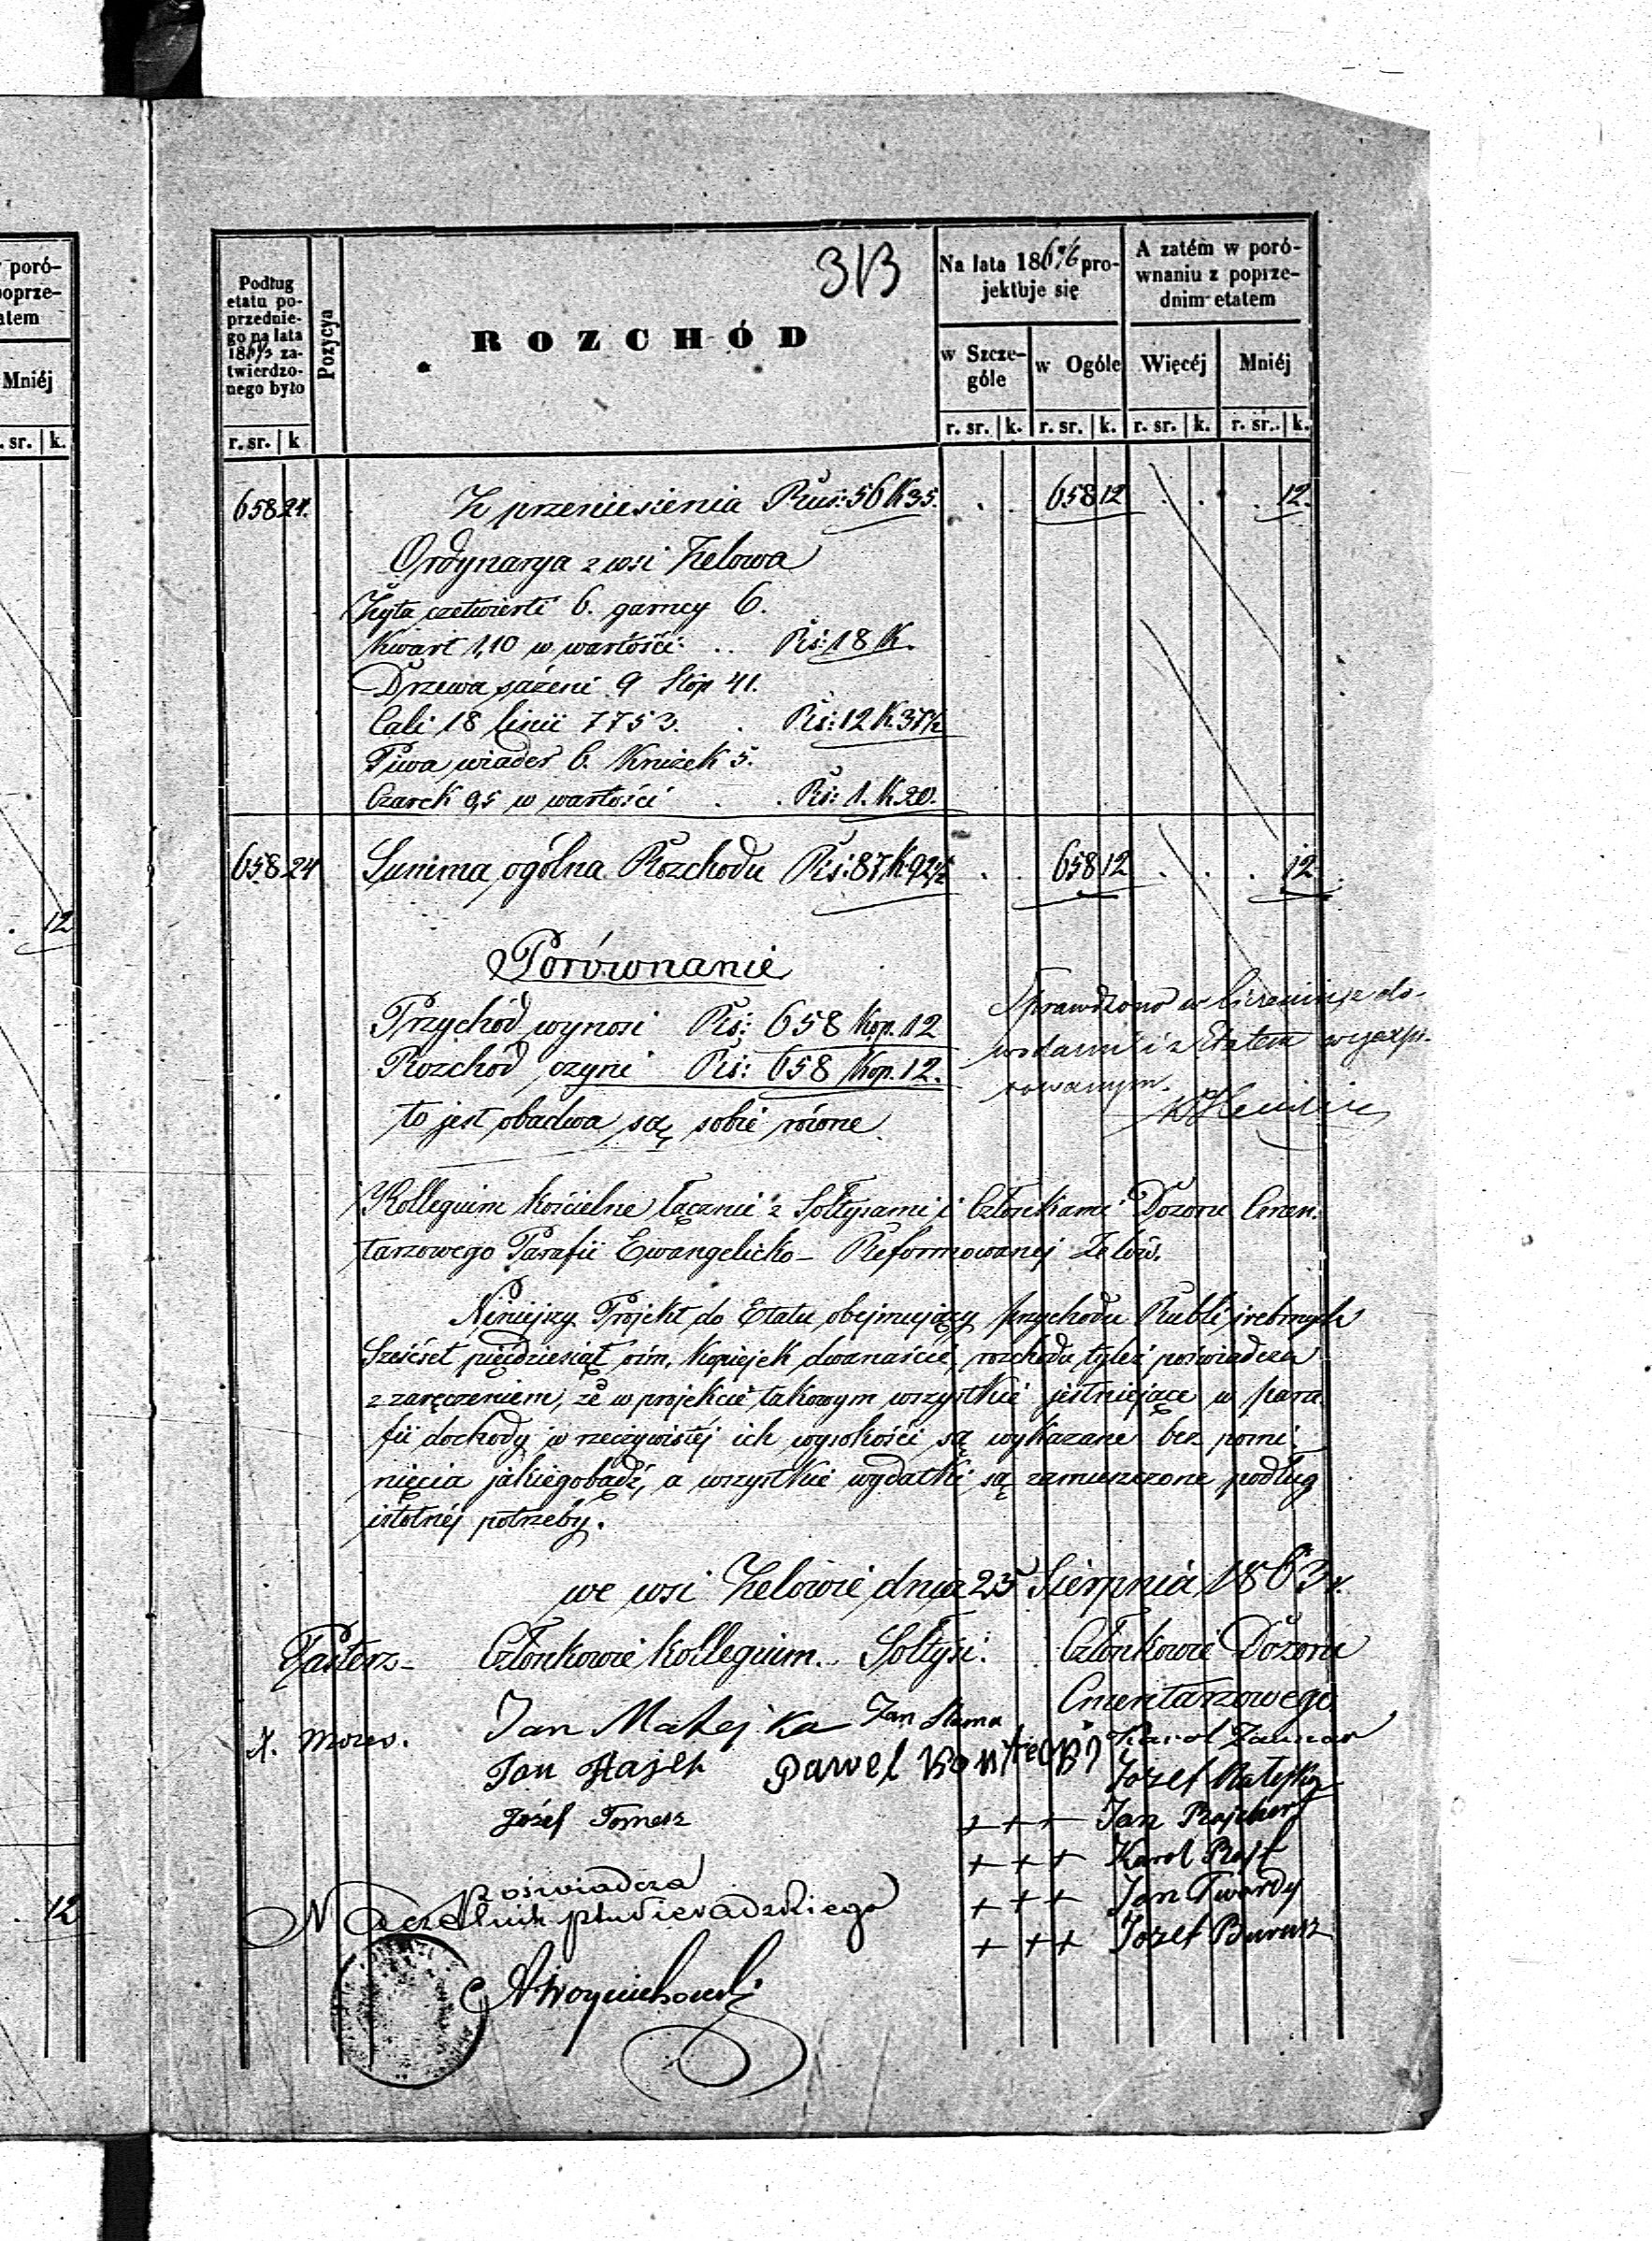 poró-
poprze-
atem
Mniéj
. sr. k.
12
12
313
Podług
etatu po-
przednie-
go na lata
186 1/3 za-
twierdzo-
nego było
r. sr. k
Pozycya
ROZCHÓD
Na lata 186 4/6 pro-
jektuje się
w Szcze-
góle
w Ogóle
r. sr. k. r. sr. k.
A zatém w poró-
wnaniu z poprze-
dnim etatem
Więcéj Mniéj
r. sr. k. r. sr. k.
658 24. Z przeniesienia Rus: 56 K 35. 658 12 12.
Ordynarya z wsi Zelowa
Żyta czetwierti 6. garncy 6.
Kwart 1,10 w wartości .. Rs: 18 K.
Drzewa sążeni 9 Stóp 41.
Cali 18 linii 7753. . Rs: 12 K. 37½
Piwa wiader 6. Krużek 5.
Czarek 9,5 w wartości . . Rs: 1. K 20.
658 24 Summa ogólna Rozchodu Rs: 87 K. 92½ . . 658 12 . . . 12
Porównanie
Przychód wynosi Rs: 658 Kop. 12
Rozchód czyni Rs: 658 Kop. 12.
to jest obadwa są sobie równe
Sprawdzono w liczeniu z do-
wodami i z Etatem wyexpi-
rowanym.
Kollegium Kościelne łącznie z Sołtysami i Członkami Dozoru Cmen-
tarzowego Parafii Ewangelicko-Reformowanej Zelów.
Niniejszy Projekt do Etatu obejmujący przychodu Rubli srebrnych
Sześćset pięćdziesiąt ośm, Kopiejek dwanaście, rozchodu tyleż poświadcza
z zaręczeniem, że w projekcie takowym wszystkie istniejące w para
fii dochody w rzeczywistéj ich wysokości są wykazane bez pomi
nięcia jakiegobądź, a wszystkie wydatki są zamieszczone podług
istotnéj potrzeby.
we wsi Zelowie dnia 25 Sierpnia 1863 r.
Pasterz- Członkowie Kollegium. Sołtysi. Członkowie Dozoru
Cmentarzowego
Mozes. Jan Matejka Jan Slama Karol
Jan Hajek Pawel Józef Matejka
Józef Tomesz +++ Jan Rajchert
+++ Karol
+++ Jan Twardy
+++ Józef
Poświadcza
Naczelnik Ptu Sieradzkiego